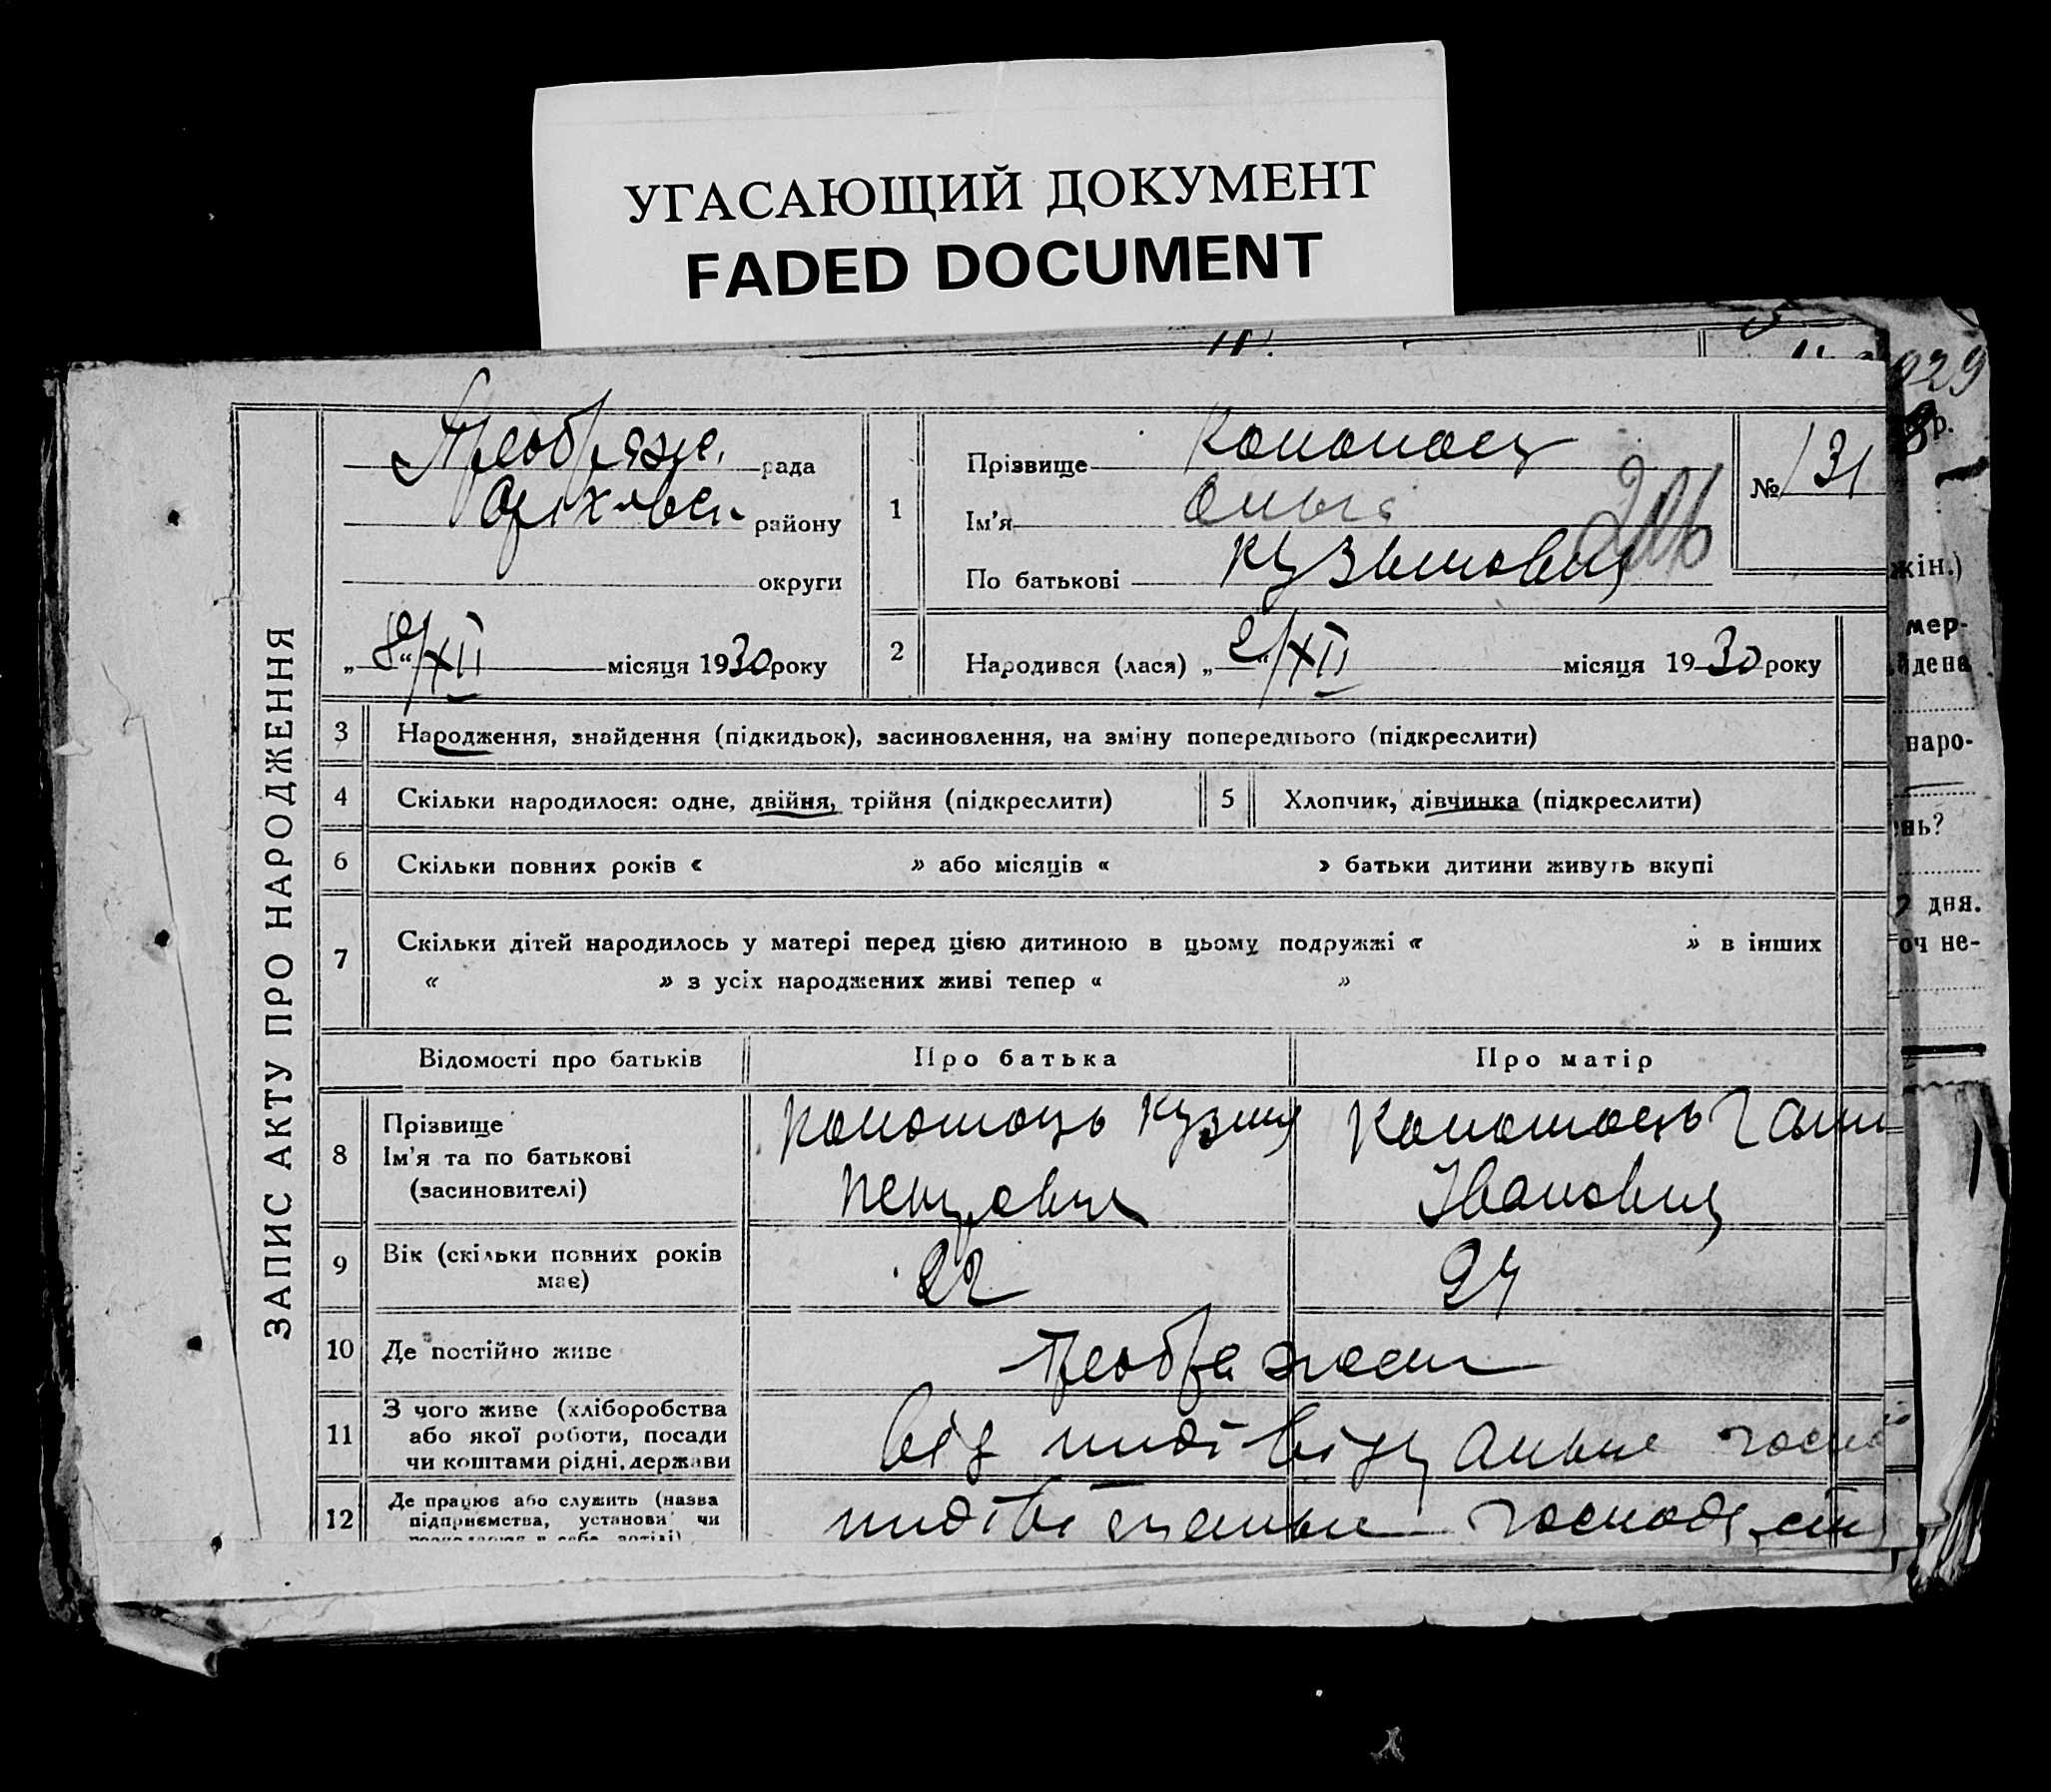 УГАСАЮЩИЙ ДОКУМЕНТ
FADED DOCUMENT
929
ЗАПИС АКТУ ПРО НАРОДЖЕННЯ
Преображе. рада
Оріхівськ району
округи
„8“/XII місяця 1930 року
1
Прізвище Кономоец
Ім'я Ольга
По батькові Кузьмовна
№ 131
2 Народився (лася) „2“/XII місяця 1930 року
3 Народження, знайдення (підкидьок), засиновлення, на зміну попереднього (підкреслити)
4 Скільки народилося: одне, двійня, трійня (підкреслити) 5 Хлопчик, дівчинка (підкреслити)
6 Скільки повних років « » або місяців « » батьки дитини живуть вкупі
7 Скільки дітей народилось у матері перед цією дитиною в цьому подружжі « » в інших
« » з усіх народжених живі тепер « »
Відомості про батьків Про батька Про матір
8 Прізвище
Ім'я та по батькові
(засиновителі)
Кономоець Кузма
Петрович
Кономоець Ганн
Івановна
9 Вік (скільки повних років
має) 22 24
10 Де постійно живе Преображеск
11 З чого живе (хліборобства
або якої роботи, посади
чи коштами рідні, держави
від індівідуальне госп
12 Де працює або служить (назва
підприємства, установи чи
індівідуальне господарст
жін.)
мер-
йдена
наро-
нь?
дня.
оч не-